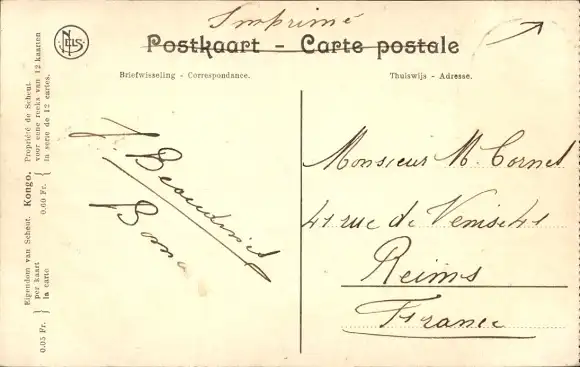 Imprimé
NELS
Postkaart - Carte postale
Briefwisseling - Correspondance.
Thuiswijs - Adresse.
Monsieur M. Cornet
41 rue de Venise 41
Reims
France
Eigendom van Scheut. Kongo. Propriété de Scheut.
per kaart
la carte
0.05 Fr.
voor eene reeks van 12 kaarten
la serie de 12 cartes.
0.60 Fr.